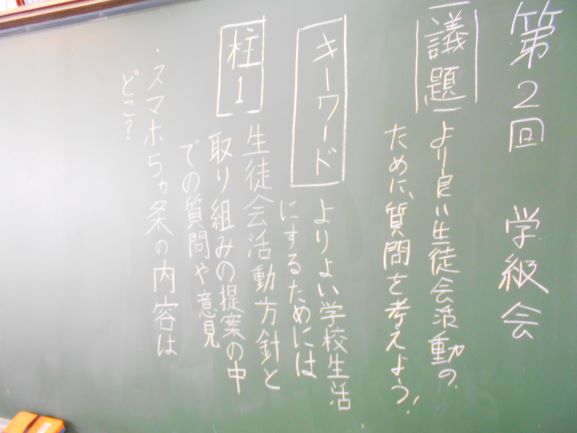 第2回 学級会
議題 より良い生徒会活動の
ために、質問を考えよう!
キーワード よりよい学校生活
にするためには
柱1 生徒会活動方針と
取り組みの提案の中
での質問や意見
・スマホ5ヵ条の内容は
どこ?